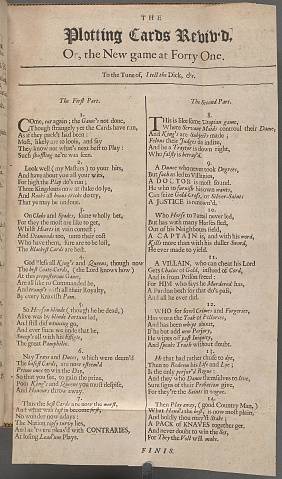 THE
Plotting Cards Reviv'd,
Or, the New game at Forty One.
To the Tune of, I tell the Dick, &c.
The First Part.
1.
COme, cut again; the Game's not done,
Though strangely yet the Cards have run,
As if they pack'd had been:
Most, likely are to look, and say
They know not what's next best to Play:
Such shuffling ne're was seen.
2.
Look well (my Masters) to your hits,
And have about you all your wits,
For high the Play do's run;
Three Kingdoms now at stake do lye,
And Rooks all
That ye may be undone.
3.
On Clubs and Spades, some wholly bet,
For they the most are like to get,
Whilst Hearts in vain connect;
And Diamonds too, turn their cost
Who have them, sure are to be lost,
The Blackest Cards are best.
4.
God bless all King's and Queens, though now
The best Coate-Cards, (the Lord knows how)
At this preposterous Game,
Are all like to Command be,
And trump't with all their Royalty,
By every Knavish Pam.
5.
So Hewson bloody (though he be dead,)
Alive was be bloody fortune led,
And still did winning go,
And ever since we in that he,
Sweep's all with his Effects,
The great Pamphilio.
6.
Nay Treys and Duces, which were deem'd
The basest Cards, are now esteem'd
Prime ones to win the Day,
So that you see, to gain the prize,
Poor King's and Queens you must despise,
And Honours throw away.
7.
Thus the best Cards are now the worst,
And what was last is become first,
No wonder now adays:
The Nation
And as 'twere pleas'd with CONTRARIES,
At losing Loadum Plays.
The Second Part.
8.
THis is like some Utopian game,
Where Servant Maids controul their Dame,
And King's are Subjects made;
Felons their Judges do indite,
And he a Traytor is down right,
Who falsest is betray'd.
9.
A Dunce who never took Degrees,
But such as led to Villanies,
A DOCTOR is most sound.
He who to forswear his own wants,
Cuts false Gold-Gifts, or Silver-Saints
A JUSTICE is renown'd.
10.
Who Horse to Battel never led,
But has with many Horses fled,
Out of his Neighbours field,
A CAPTAIN is, and with his word,
Kills more than with his duller Sword,
He ever made to yield.
11.
A VILLAIN, who can cheat his Lord
Gets Chains of Gold, instead of Cord,
And is from Prison freed:
For HIM who says he Murdered has,
A Pardon doth for that do's pass,
And all he ever did.
12.
WHO for fowl Crimes and Forgeries,
Has worn the Teak of Pillories,
And has been whipt about,
If he but add new Perjury,
He wipes off past Iniquity,
And speaks Truth without doubt.
13.
He that had rather chuse to dye,
Then to Redeem his Life and Lye;
Is the only perjur'd Rogue:
And they who Damn themselves to live,
Sure signs of their Probation give,
For they're the Saints in vogue.
14.
Then Play away, (good Country Man,)
What Hand's the best, is now most plain,
And boldly thou may'st Stake;
A PACK of KNAVES together get,
And never doubt to win the Set,
For They the Vole will make.
FINIS.